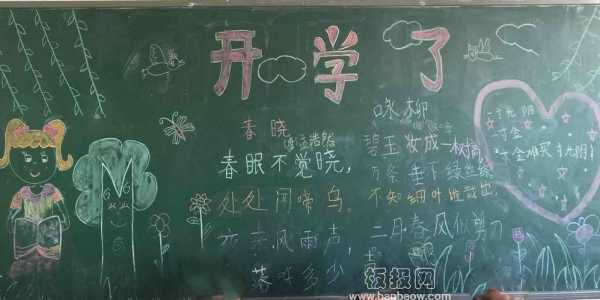 开学了
春晓
孟浩然
春眠不觉晓，
处处闻啼鸟。
夜来风雨声，
落知多少
咏柳
碧玉妆成一树高
万条垂下绿丝绦
不知细叶谁裁出
二月春风似剪刀
寸光阴
寸金
寸金难买寸光阴
板报网
www.banbaow.com